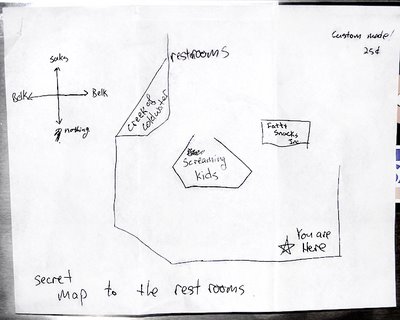 Custom made!
25¢
restrooms
saks
Belk
Belk
nothing
creek of
coldwater
Fatty
Snacks
Inc
Screaming
kids
You are
Here
secret
map to the rest rooms